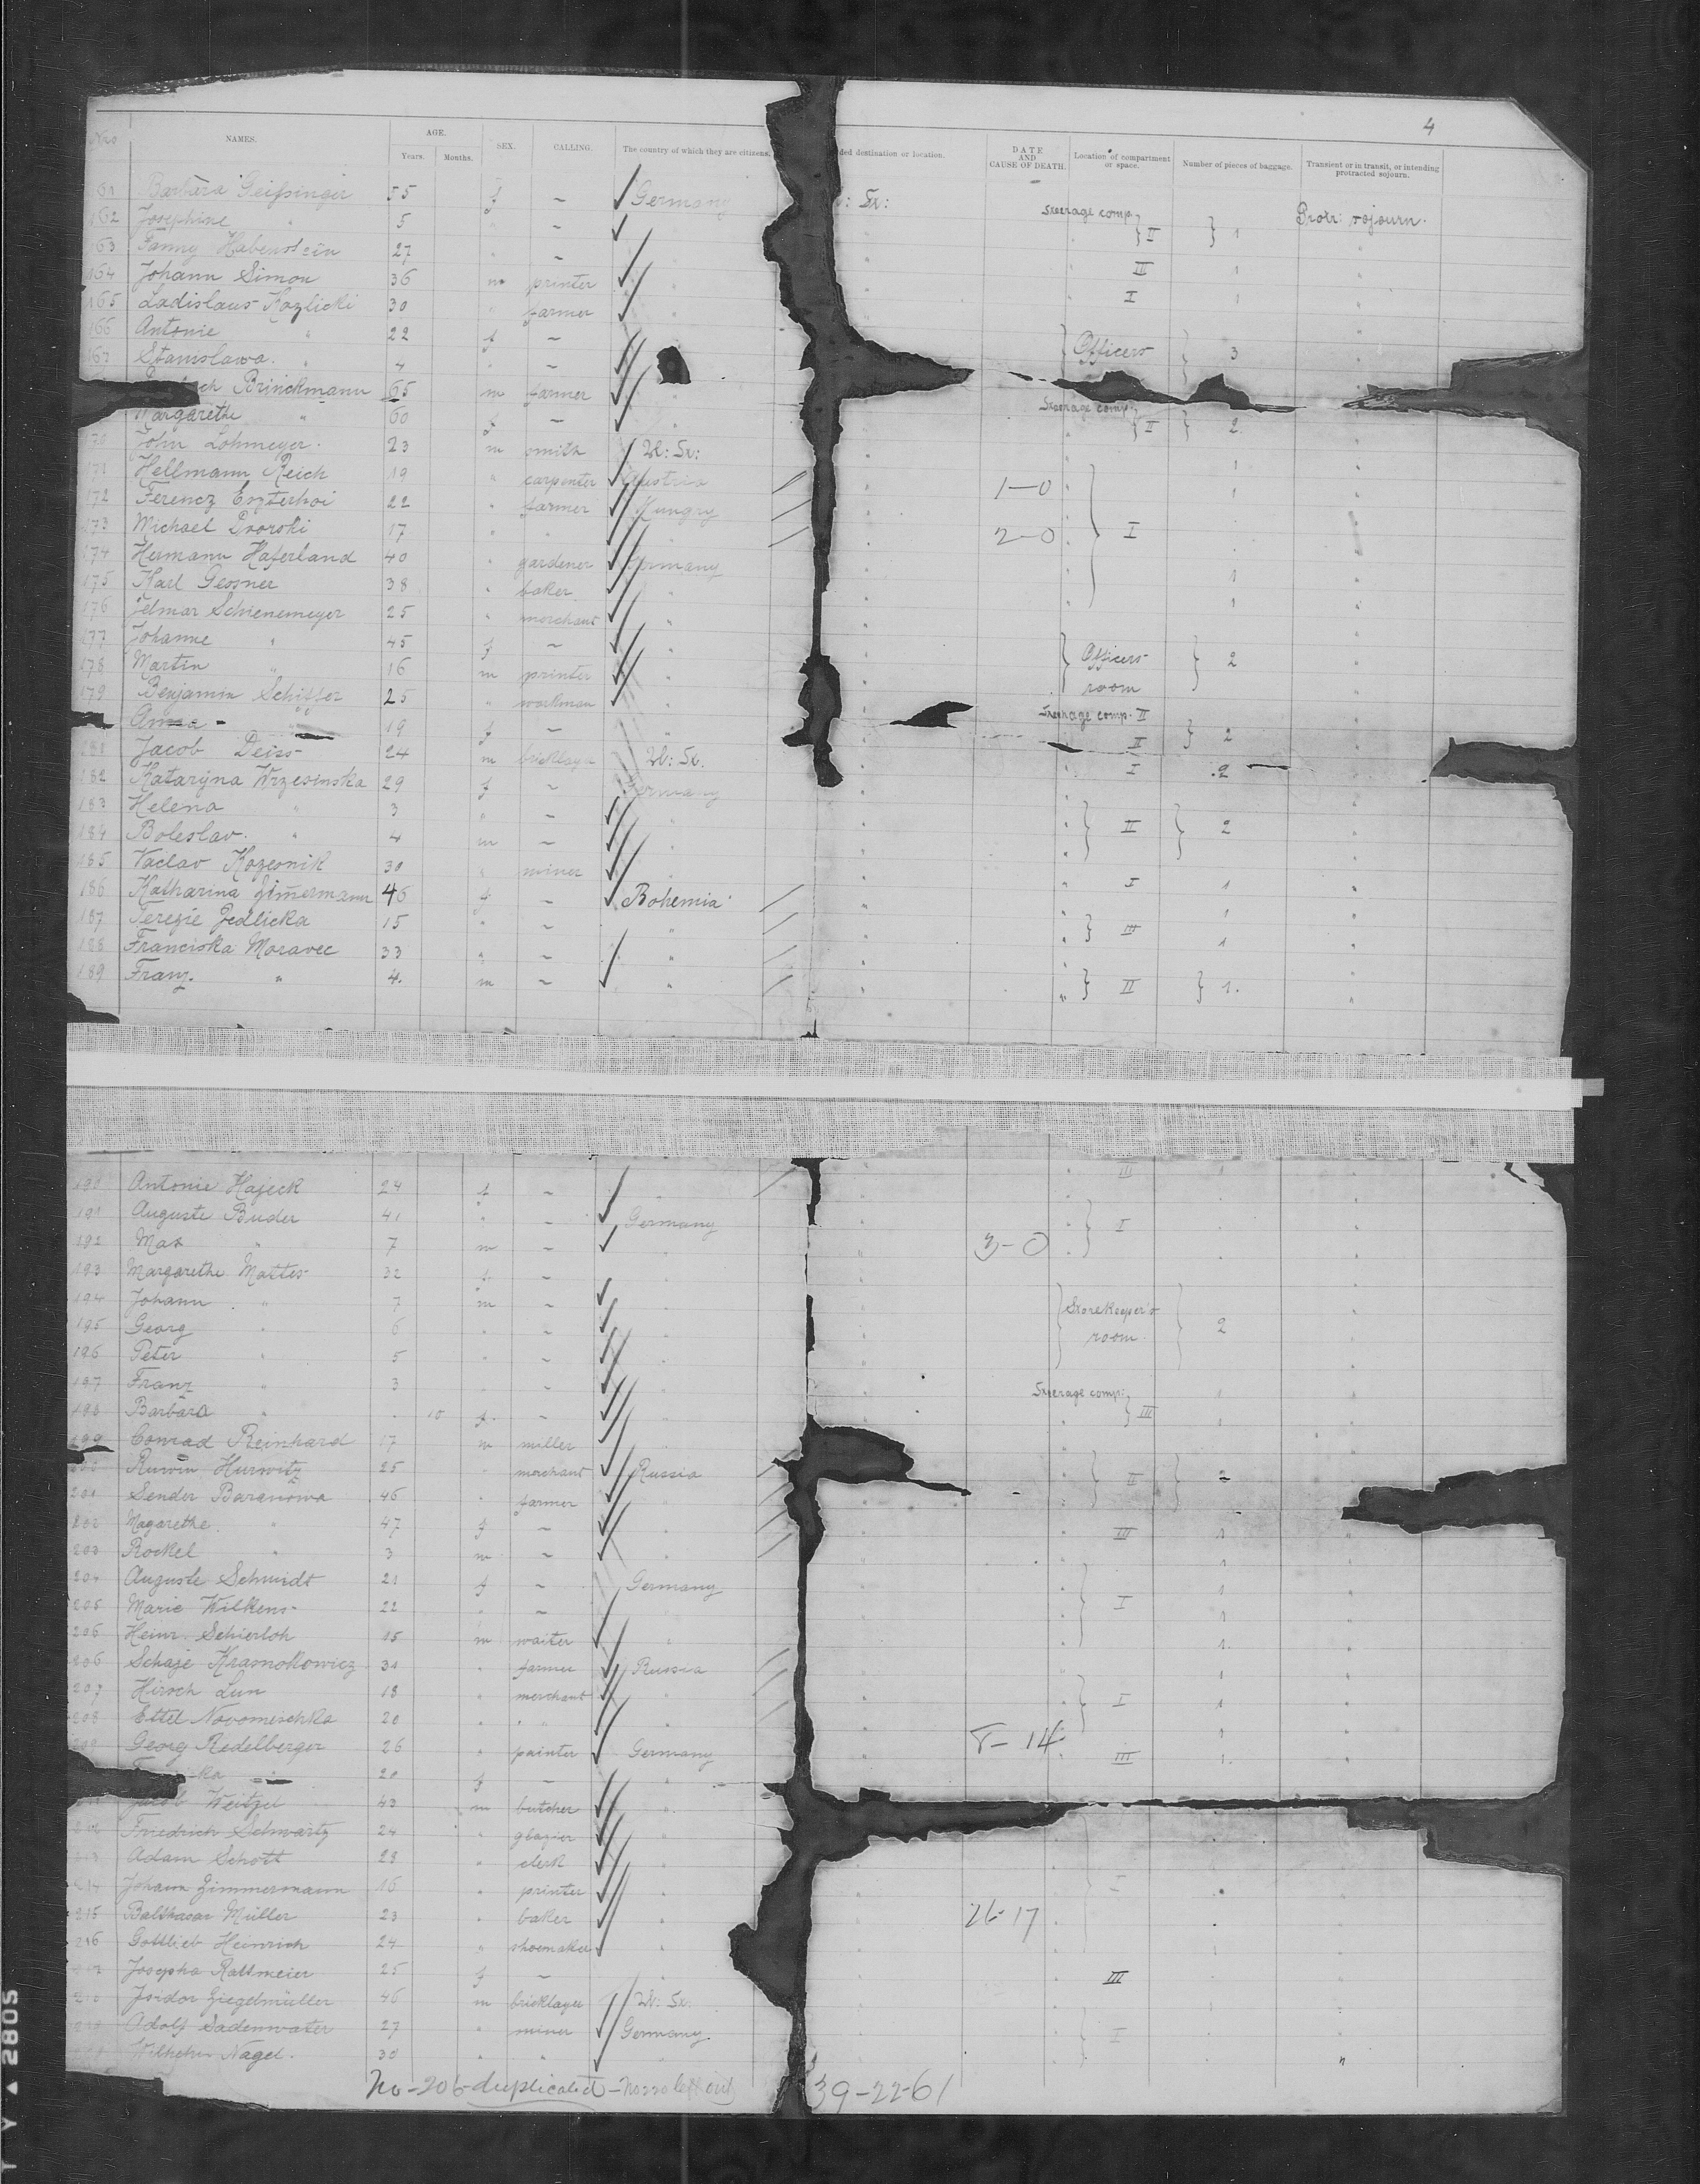 4
Nro NAMES. AGE. Years. Months. SEX. CALLING. The country of which they are citizens. ded destination or location. DATE AND CAUSE OF DEATH. Location of compartment or space. Number of pieces of baggage. Transient or in transit, or intending protracted sojourn.
61 Barbara Geissinger 55 f ~ Germany : St: Steerage comp. Protr: sojourn.
162 Josephine " 5 " ~ } II } 1
163 Fanny Habenstein 27 " ~ " III 1 "
164 Johann Simon 36 m printer " I 1 "
165 Ladislaus Kozlicki 30 " farmer "
166 Antonie " 22 f ~ } Officers } 3
167 Stanislawa " 4 " ~
Brinckmann 65 m farmer " Steerage comp.
Margarethe " 60 f ~ " } II } 2
170 John Lohmeyer 23 m smith U: St: 1
171 Hellmann Reich 19 " carpenter Austria 1-0 1
172 Ferencz Eszterhoi 22 " farmer Hungry } I
173 Michael Dvorski 17 " " " 2-0
174 Hermann Haferland 40 " gardener Germany 1
175 Karl Gessner 38 " baker " 1
176 Jelmar Schienemeyer 25 " merchant "
177 Johanne " 45 f ~ " } Officers } 2
178 Martin " 16 m printer " room
179 Benjamin Schiffer 25 " workman " Steerage comp. II
Anna " 19 f ~ " II } 2
181 Jacob Deiss 24 m bricklayer U: St. I 2
182 Katarijna Wrzesinska 29 f ~ Germany
183 Helena " 3 " ~ " } II } 2
184 Boleslav " 4 m ~ "
185 Vaclav Kozesnik 30 " miner " I 1
186 Katharina Zimermann 46 f ~ Bohemia 1
187 Terezie Jedlicka 15 " ~ " } III 1
188 Franciska Moravec 33 " ~ "
189 Franz " 4 m ~ " } II } 1.
III 1
190 Antonie Hajeck 24 f ~ "
191 Auguste Buder 41 " ~ Germany } I
192 Max " 7 m ~ " 3-0
193 Margarethe Mattes 32 f ~ "
194 Johann " 7 m ~ " } Storekeeper's } 2
195 Georg " 6 " ~ " room
196 Peter " 5 " ~ "
197 Franz " 3 " ~ " Steerage comp. 1
198 Barbara " 10 f ~ " } III 1
199 Conrad Reinhard 17 m miller "
Ruwin Hurwitz 25 " merchant Russia } II } 2
201 Sender Baranowa 46 " farmer "
202 Magarethe " 47 f ~ " III 1
203 Rockel " 3 m ~ " 1
204 Auguste Schmidt 21 f ~ Germany 1
205 Marie Wilkens 22 " ~ } I 1
206 Heinr. Schierloh 15 m waiter " 1.
206 Schaje Krasnokowicz 31 " farmer Russia 1
207 Hirsch Lun 18 " merchant " } I 1
208 Ettel Novomeschka 20 " " " 1
209 Georg Redelberger 26 " painter Germany 8-14 III 1.
ka " 20 f ~ "
Jacob Weitzel 43 m butcher "
212 Friedrich Schwartz 24 " glazier "
213 Adam Schott 23 " clerk "
214 Johann Zimmermann 16 " printer "
215 Balthasar Müller 23 " baker " 26-17
216 Gottlieb Heinrich 24 " shoemaker "
Josepha Rattmeier 25 f ~ III
Isidor Ziegelmüller 46 m bricklayer U: St:
Adolf Sadenwater 27 " miner Germany. } I
Wilhelm Nagel 30 " "
No-206 duplicated - No 220 left out 39-22-61
Y ▲ 2805